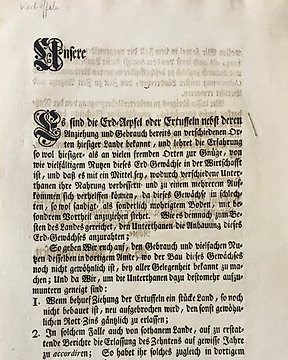 Kartoffeln
Unsere
Es sind die Erd-Aepfel oder Ertuffeln nebst deren
Anziehung und Gebrauch bereits an verschiedenen Or-
ten hiesiger Lande bekannt, und lehret die Erfahrung
so wol hiesiger- als an vielen fremden Orten zur Gnüge, von
wie vielfältigem Nutzen dieses Erd-Gewächse in der Wirthschafft
ist, und daß es mit ein Mittel sey, wodurch verschiedene Unter-
thanen ihre Nahrung verbessern- und zu einem mehrerem Aus-
kommen sich verhelffen können, da dieses Gewächse in schlech-
ten, so wol sandigt- als sonderlich mohrigten Boden, mit be-
sonderm Vortheil anzuziehen stehet. Wie es demnach zum Be-
sten des Landes gereichet, den Unterthanen die Anbauung dieses
Erd-Gewächses anzurathen;
So geben Wir euch auf, den Gebrauch und vielfachen Nu-
tzen desselben in dortigem Amte, wo der Bau dieses Gewächses
noch nicht gewöhnlich ist, bey aller Gelegenheit bekannt zu ma-
chen; Und da Wir, um die Unterthanen dazu destomehr aufzu-
muntern geneigt sind:
1. Wenn behuf Ziehung der Ertuffeln ein stücke Land, so noch
nicht bebauet ist, neu aufgebrochen wird, den sonst gewöhn-
lichen Rott Zins gänzlich zu erlassen;
2. In solchem Falle auch von sothanem Lande, auf zu erstat-
tende Berichte die Erlassung des Zehntens auf gewisse Jahre
zu accordiren; So habt ihr solches zugleich in dortigem